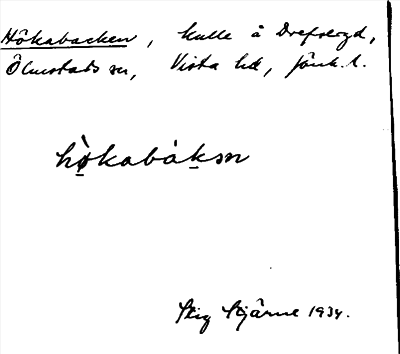 Hökabacken, kulle å Drefseryd,
Ölmstads sn, Vista hd, Jönk. l.
hökabàkən
Stig Stjärne 1934.